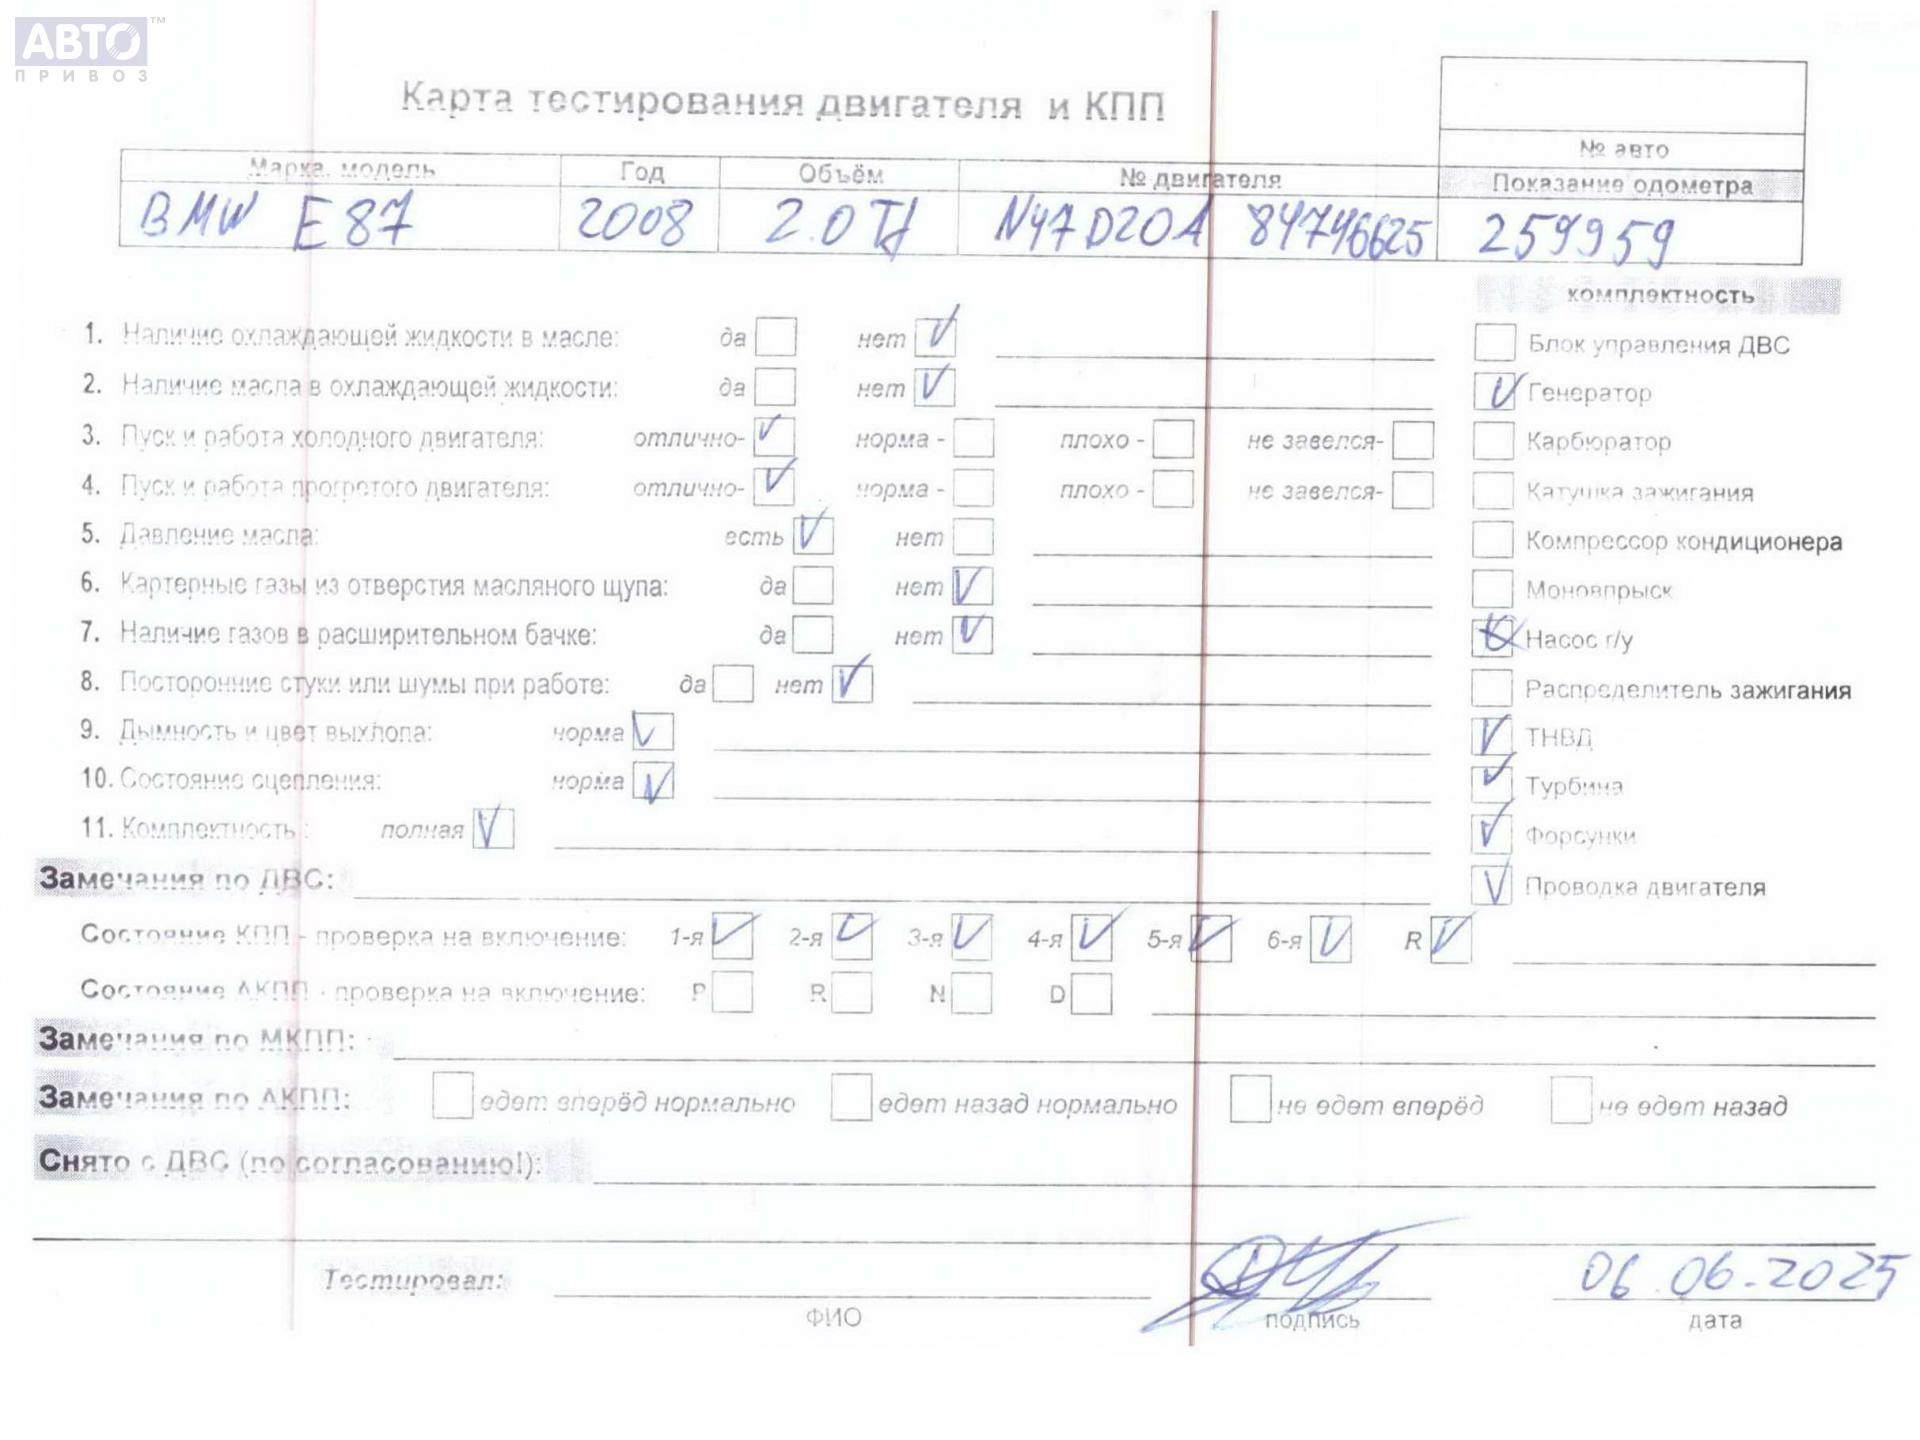 АВТО™
ПРИВОЗ
Карта тестирования двигателя и КПП
№ авто
Марка, модель Год Объём № двигателя Показание одометра
BMW E87 2008 2.0 Td N47D20A 84746625 259959
комплектность
1. Наличие охлаждающей жидкости в масле: да нет V
Блок управления ДВС
2. Наличие масла в охлаждающей жидкости: да нет V
V Генератор
3. Пуск и работа холодного двигателя: отлично- V норма - плохо - не завелся-
Карбюратор
4. Пуск и работа прогретого двигателя: отлично- V норма - плохо - не завелся-
Катушка зажигания
5. Давление масла: есть V нет
Компрессор кондиционера
6. Картерные газы из отверстия масляного щупа: да нет V
Моновпрыск
7. Наличие газов в расширительном бачке: да нет V
Насос г/у
8. Посторонние стуки или шумы при работе: да нет V
Распределитель зажигания
9. Дымность и цвет выхлопа: норма V
V ТНВД
10. Состояние сцепления: норма V
V Турбина
11. Комплектность : полная V
V Форсунки
Замечания по ДВС:
V Проводка двигателя
Состояние КПП - проверка на включение: 1-я V 2-я V 3-я V 4-я V 5-я V 6-я V R V
Состояние АКПП - проверка на включение: P R N D
Замечания по МКПП:
Замечания по АКПП: едет вперёд нормально едет назад нормально не едет вперёд не едет назад
Снято с ДВС (по согласованию!):
Тестировал: 06.06.2025
ФИО подпись дата